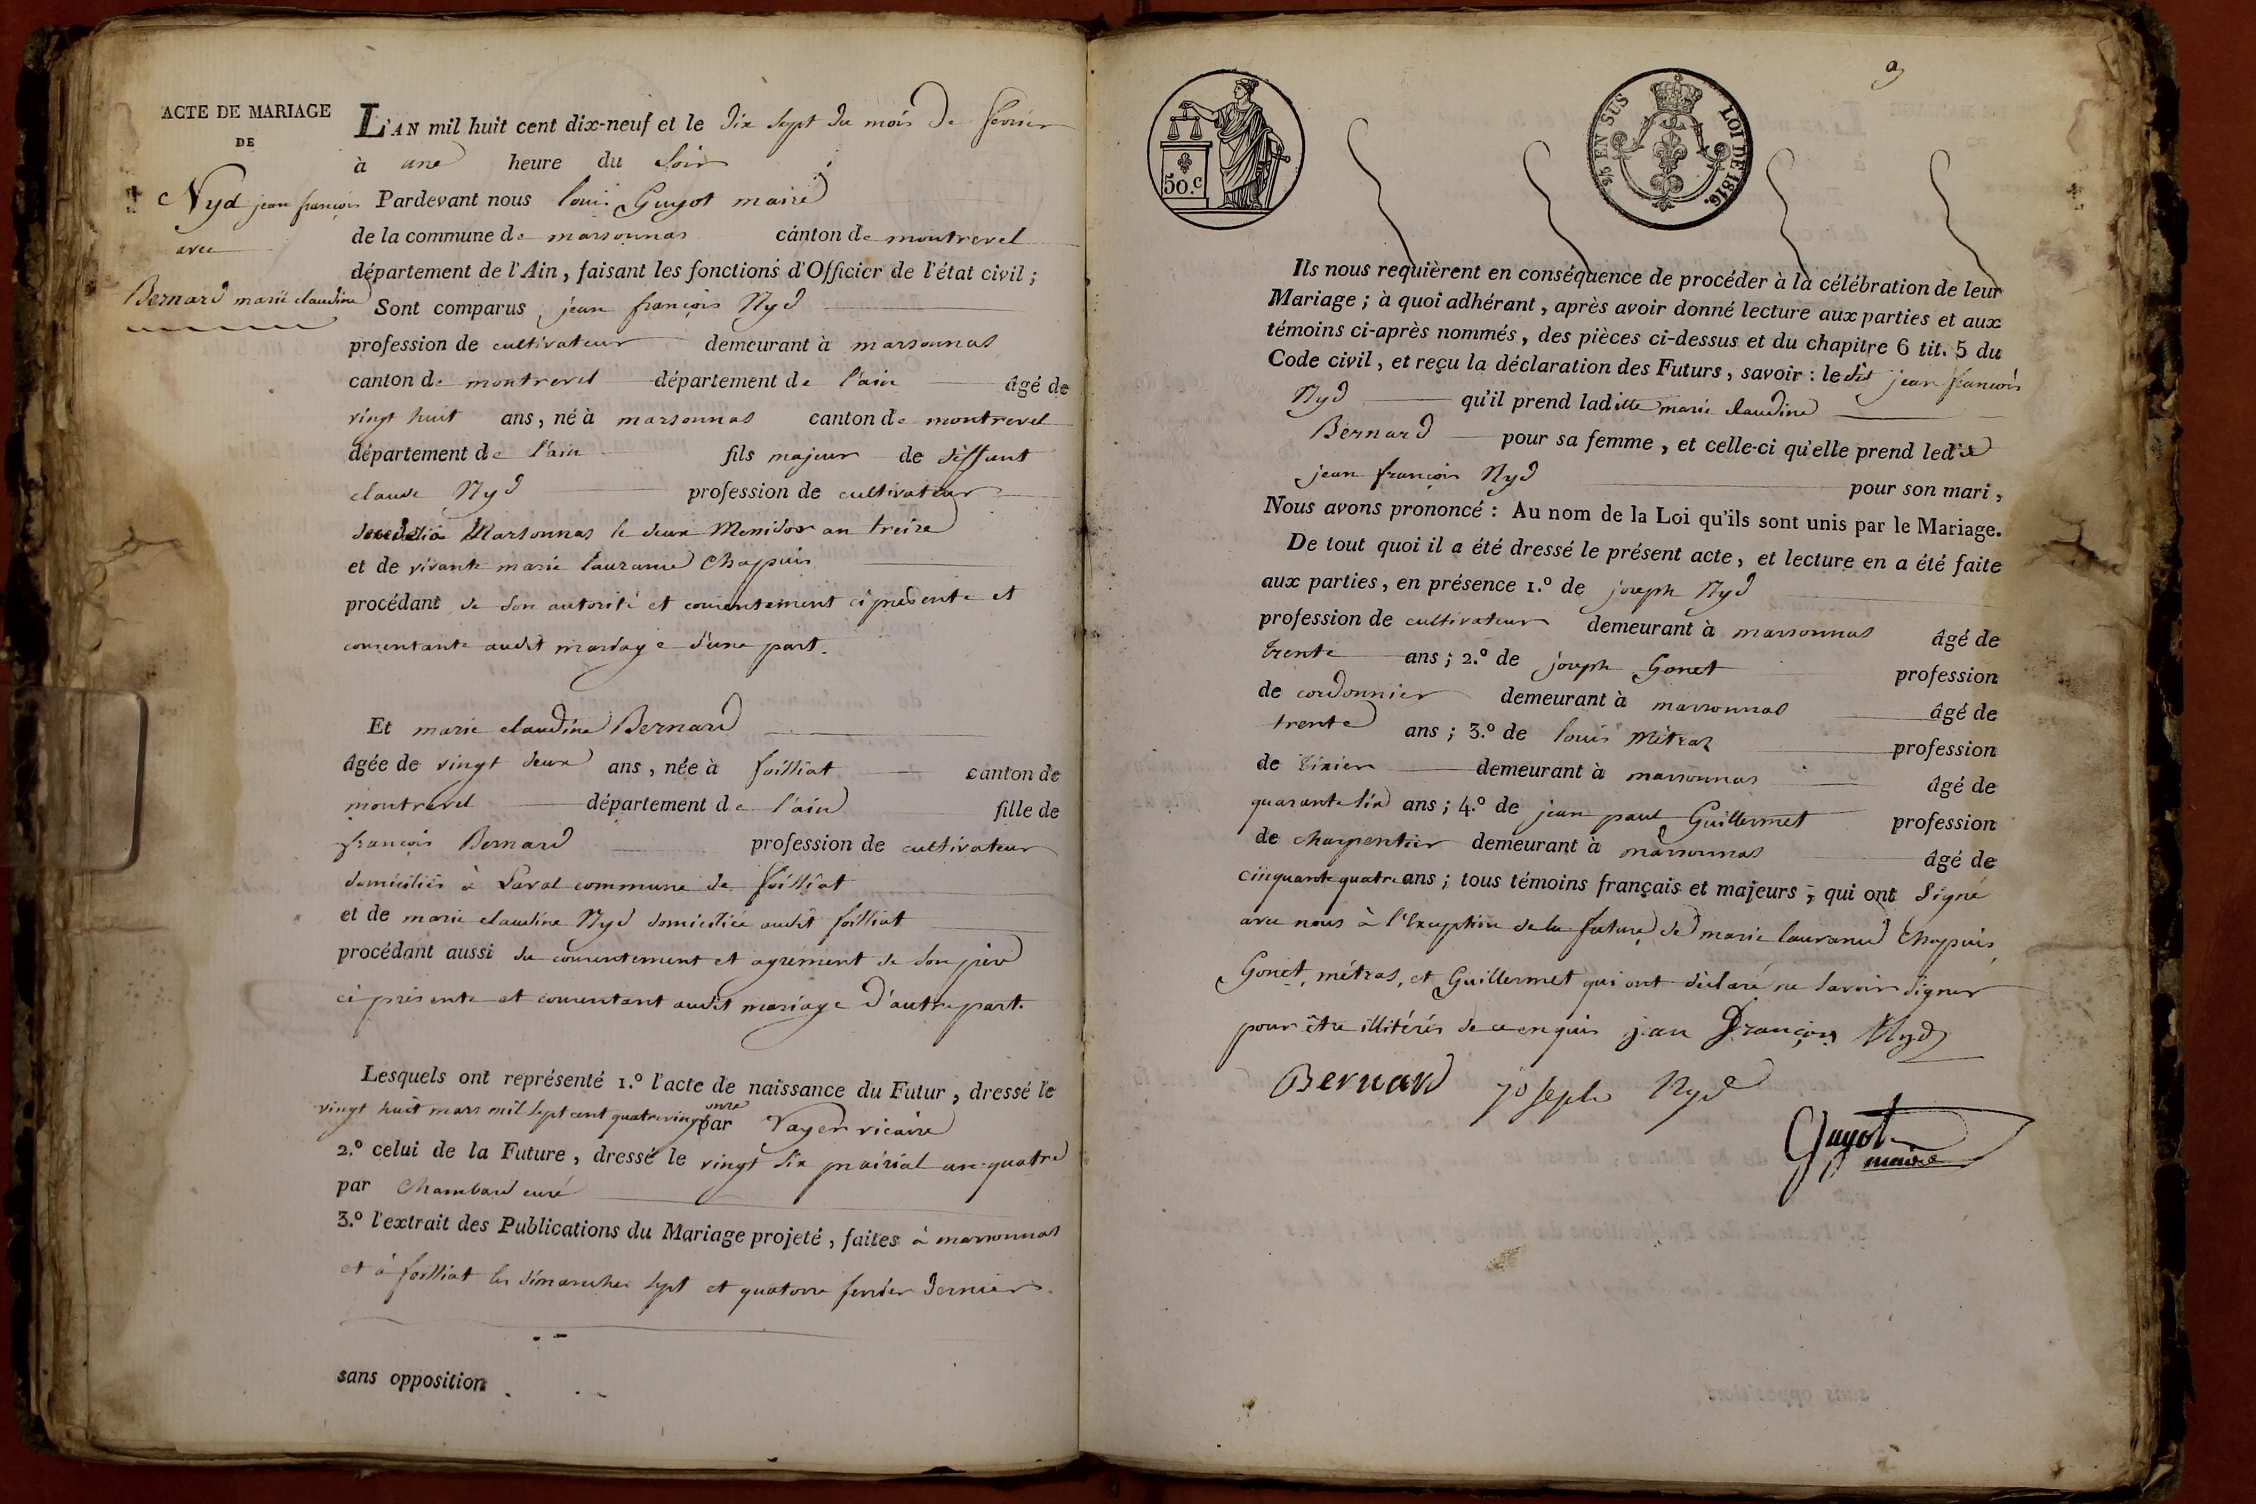 ACTE DE MARIAGE
DE
Nyd jean françois
avec
Bernard marie claudine
L'AN mil huit cent dix-neuf et le dix sept du mois de fevrier
à une heure du soir
Pardevant nous louis Guyot maire
de la commune de marsonnas canton de montrevel
département de l'Ain, faisant les fonctions d'Officier de l'état civil ;
Sont comparus jean françois Nyd
profession de cultivateur demeurant à marsonnas
canton de montrevel département de l'ain âgé de
vingt huit ans, né à marsonnas canton de montrevel
département de l'ain fils majeur de deffunt
claude Nyd profession de cultivateur
Marsonnas le deux Messidor an treize
et de vivante marie lauranne Chapuis
procédant de son autorité et consentement ci presente et
consentante audit mariage d'une part.
Et marie claudine Bernard
âgée de vingt deux ans, née à foissiat canton de
montrevel département de l'ain fille de
françois Bernard profession de cultivateur
domiciliés à Laval commune de foissiat
et de marie claudine Nyd domiciliée audit foissiat
procédant aussi du consentement et agrément de son père
ci présente et consentant audit mariage d'autre part.
Lesquels ont représenté 1.º l'acte de naissance du Futur, dressé le
vingt huit mars mil sept cent quatrevingt onze par Vayer vicaire
2.º celui de la Future, dressé le vingt six prairial an quatre
par Chambard curé
3.º l'extrait des Publications du Mariage projeté, faites à marsonnas
et à foissiat les dimanches sept et quatorze fevrier dernier.
sans opposition
9
50.c
25 EN SUS LOI DE 1816.
Ils nous requièrent en conséquence de procéder à la célébration de leur
Mariage ; à quoi adhérant, après avoir donné lecture aux parties et aux
témoins ci-après nommés, des pièces ci-dessus et du chapitre 6 tit. 5 du
Code civil, et reçu la déclaration des Futurs, savoir : ledit jean françois
Nyd qu'il prend laditte marie claudine
Bernard pour sa femme, et celle-ci qu'elle prend ledit
jean françois Nyd pour son mari,
Nous avons prononcé : Au nom de la Loi qu'ils sont unis par le Mariage.
De tout quoi il a été dressé le présent acte, et lecture en a été faite
aux parties, en présence 1.º de joseph Nyd
profession de cultivateur demeurant à marsonnas âgé de
trente ans ; 2.º de joseph Gonet profession
de cordonnier demeurant à marsonnas âgé de
trente ans ; 3.º de louis Métras profession
de tixier demeurant à marsonnas âgé de
quarante six ans ; 4.º de jean paul Guillermet profession
de charpentier demeurant à marsonnas âgé de
cinquante quatre ans ; tous témoins français et majeurs, qui ont Signé
avec nous à l'Exception de la future, de marie lauranne Chapuis
Gonet, métras, et Guillermet qui ont déclaré ne savoir signer
pour être illitérés de ce enquis jean François Nyd
Bernard joseph Nyd
Guyot
maire